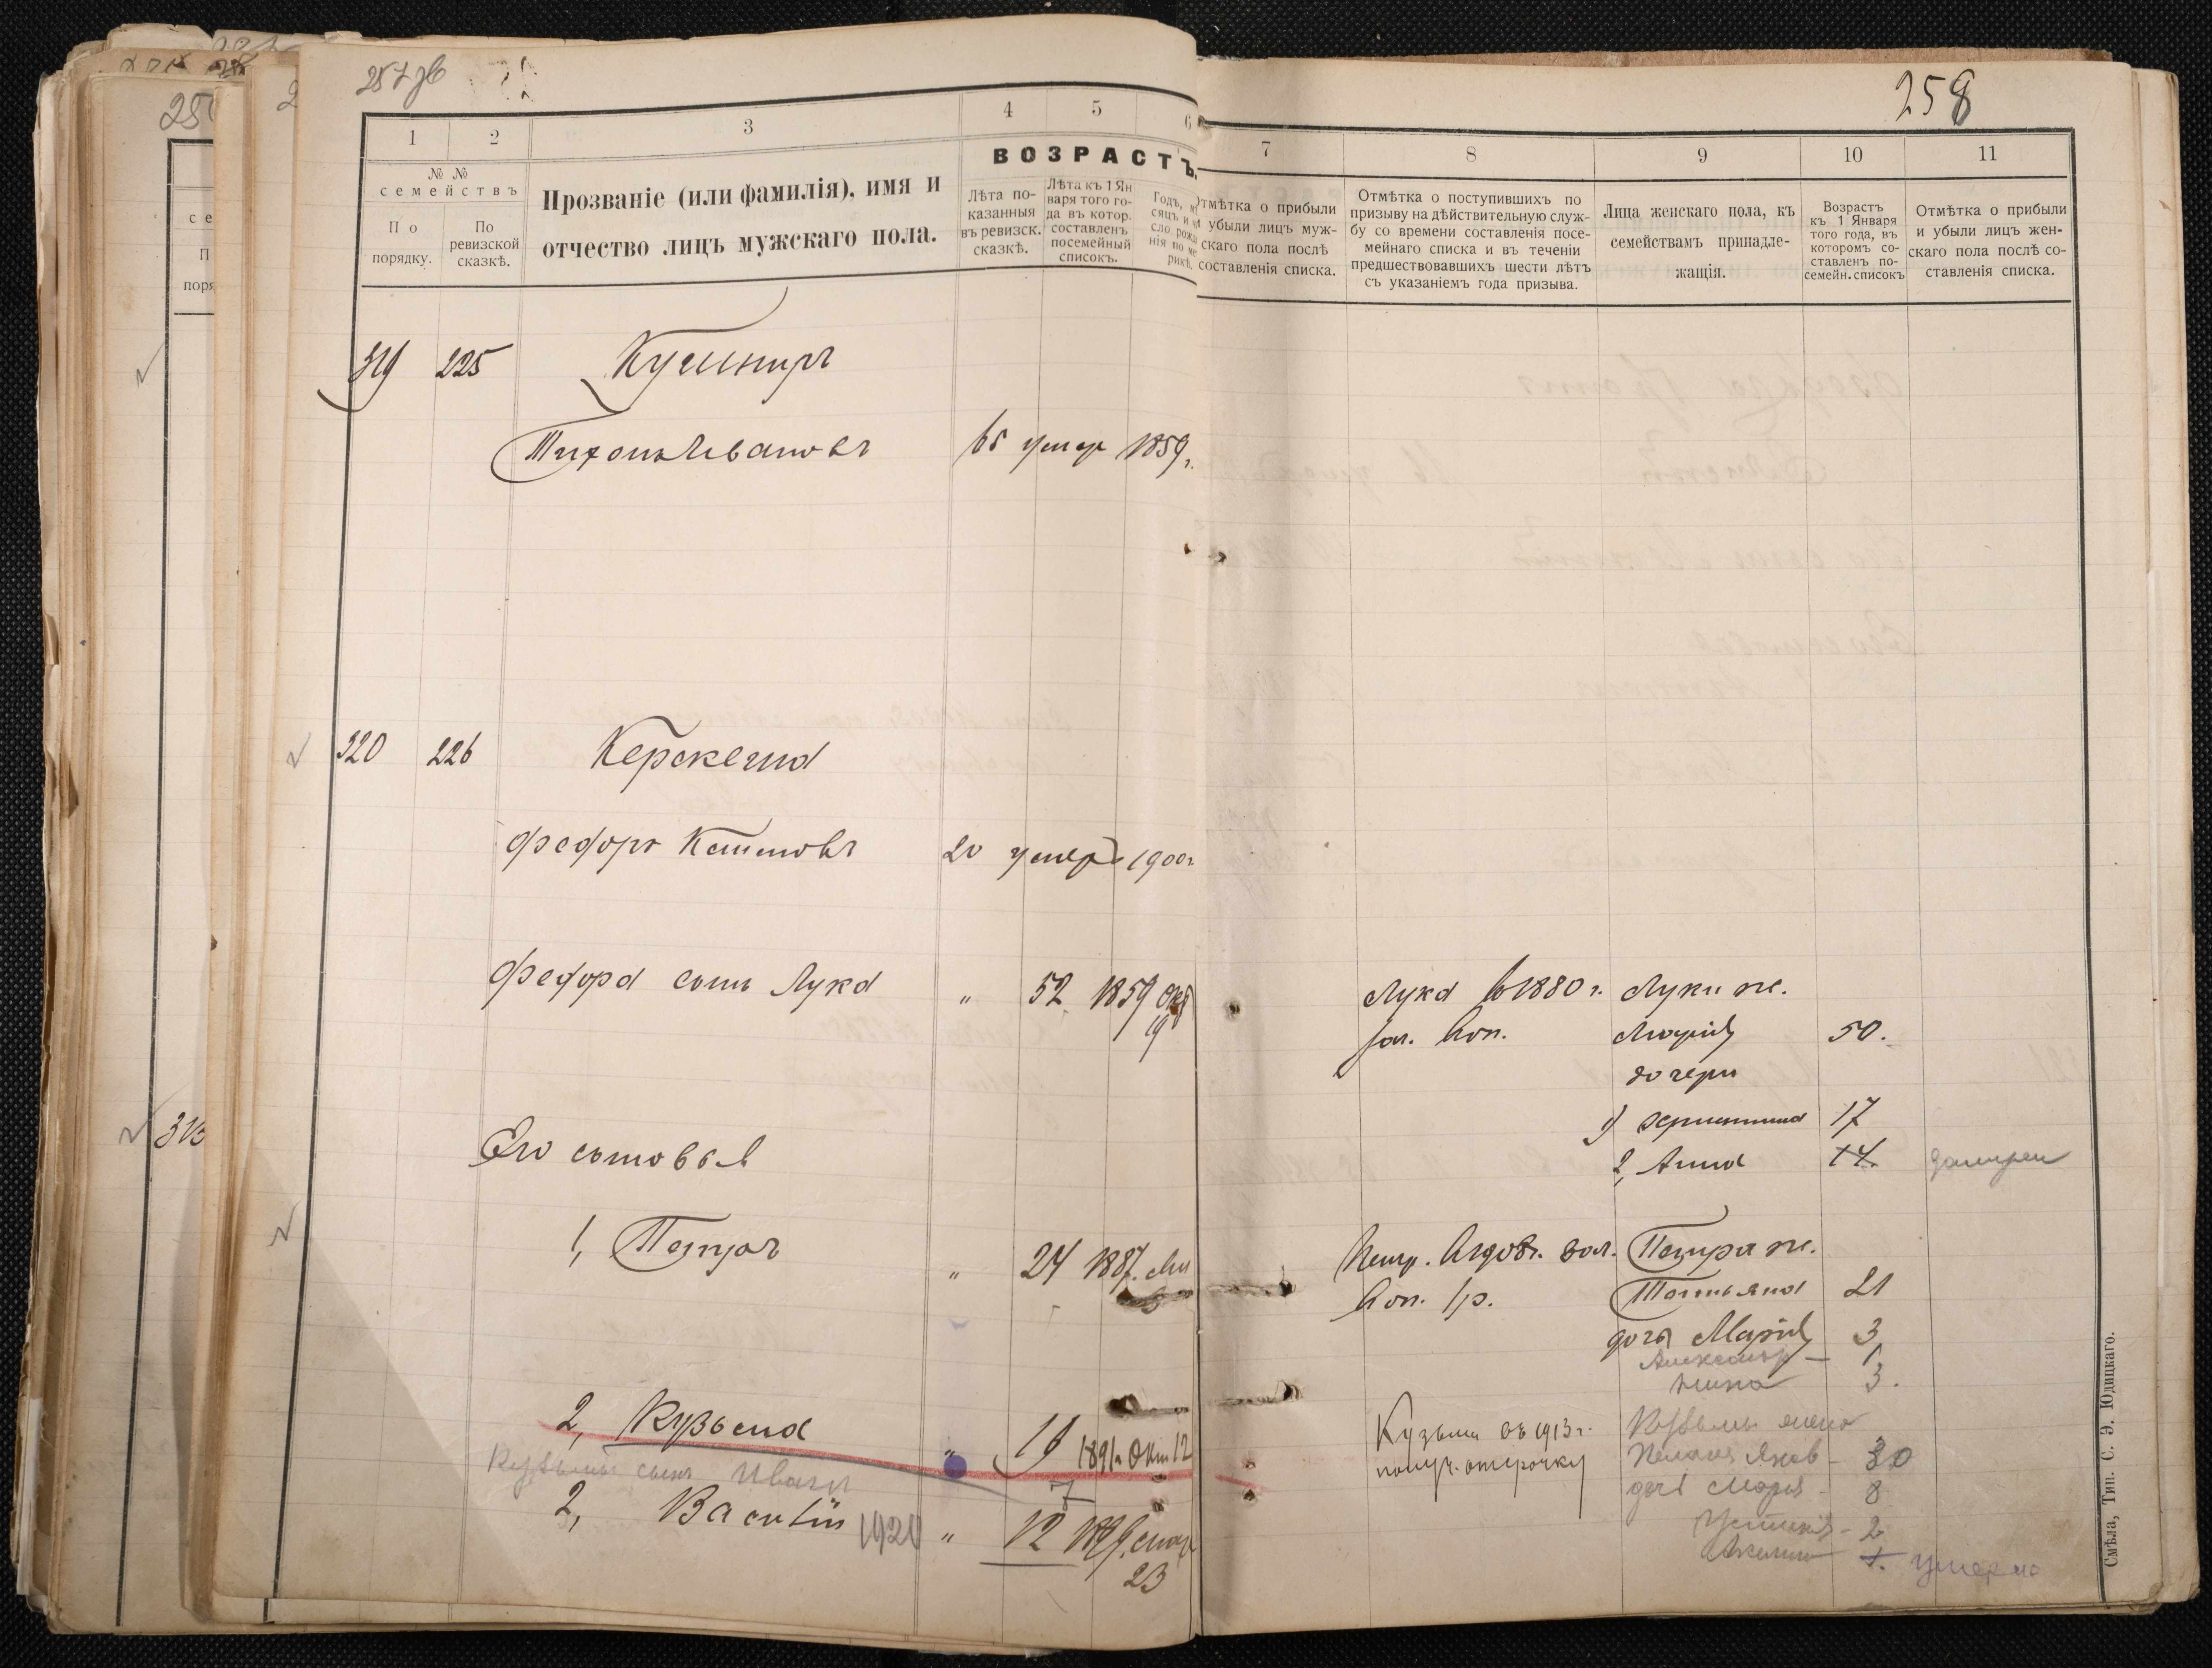 258
1 2 3 4 5 6
№ №
семействъ
По
порядку.
По
ревизской
сказкѣ.
Прозваніе (или фамилія), имя и
отчество лицъ мужского пола.
ВОЗРАСТЪ.
Лѣта по-
казанныя
въ ревизск.
сказкѣ.
Лѣта къ 1 Ян
варя того го-
да въ котор.
составленъ
посемейный
списокъ.
7 8 9 10 11
Отмѣтка о прибыли
и убыли лицъ муж-
скаго пола послѣ
составленія списка.
Отмѣтка о поступившихъ по
призыву на дѣйствительную служ-
бу со времени составленія посе-
мейнаго списка и въ теченіи
предшествовавшихъ шести лѣтъ
съ указаніемъ года призыва.
Лица женскаго пола, къ
семействамъ принадле-
жащія.
Возрастъ
къ 1 Января
того года, въ
которомъ со-
ставленъ по-
семейн. списокъ
Отмѣтка о прибыли
и убыли лицъ жен-
скаго пола послѣ со-
ставленія списка.
319 225 Кушниръ
Тихонъ Ивановъ 65 умер 1859 г.
320 226
Федоръ 20 умер 1900 г.
Федора сынъ Лука " 52 1859 Окт
19
Лука в 1880 г. Луки ж.
Марія 50.
дочери
1) 17
2, Анна 14.
Его сыновья
1, Петръ " 24 1887.
Петра ж.
Татьяна 21
дочь Марія 3
Александр — 1
Нина 3.
2, Кузьма " 19 1891 г. Окт 12
Кузьма въ 1913 г.
получ. отсрочку
Кузьмы жена
Яков - 30
дочь Мария - 8
Устинія - 2
1. умерла
Кузьмы сынъ Иванъ 7
2, Василій 1920 " 12
23
Смѣла, Тип. С. Э. Юдицкаго.